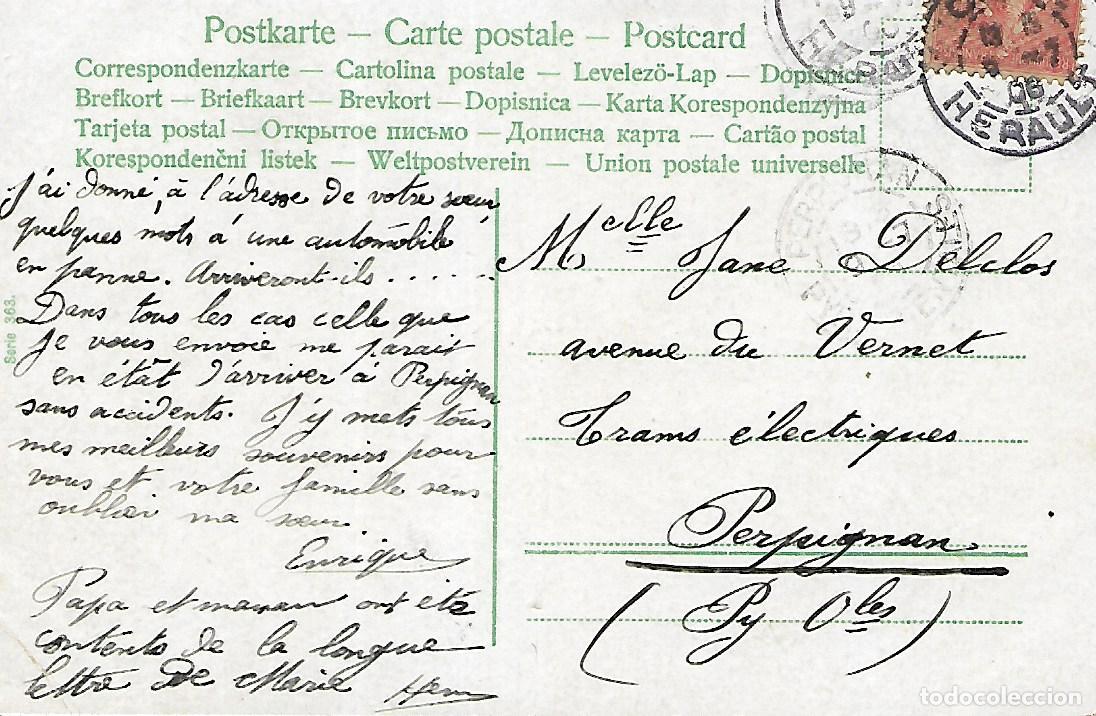 Postkarte — Carte postale — Postcard
Correspondenzkarte — Cartolina postale — Levelezö-Lap — Dopisnice
Brefkort — Briefkaart — Brevkort — Dopisnica — Karta Korespondenzyjna
Tarjeta postal — Открытое письмо — Дописна карта — Cartão postal
Korespondenčni listek — Weltpostverein — Union postale universelle
J'ai donné, à l'adresse de votre sœur
quelques mots à une automobile
en panne. Arriveront-ils . . . . . .
Dans tous les cas celle que
je vous envoie me parait
en état d'arriver à Perpignan
sans accidents. J'y mets tous
mes meilleurs souvenirs pour
vous et votre famille sans
oublier ma sœur.
Enrique
Papa et maman ont été
contents de la longue
lettre de Marie
Serie 363.
Mcelle Jane Delclos
avenue du Vernet
Trams électriques
Perpignan
(Py Oles)
HERAULT
HERAULT
PERPIGNAN
todocoleccion